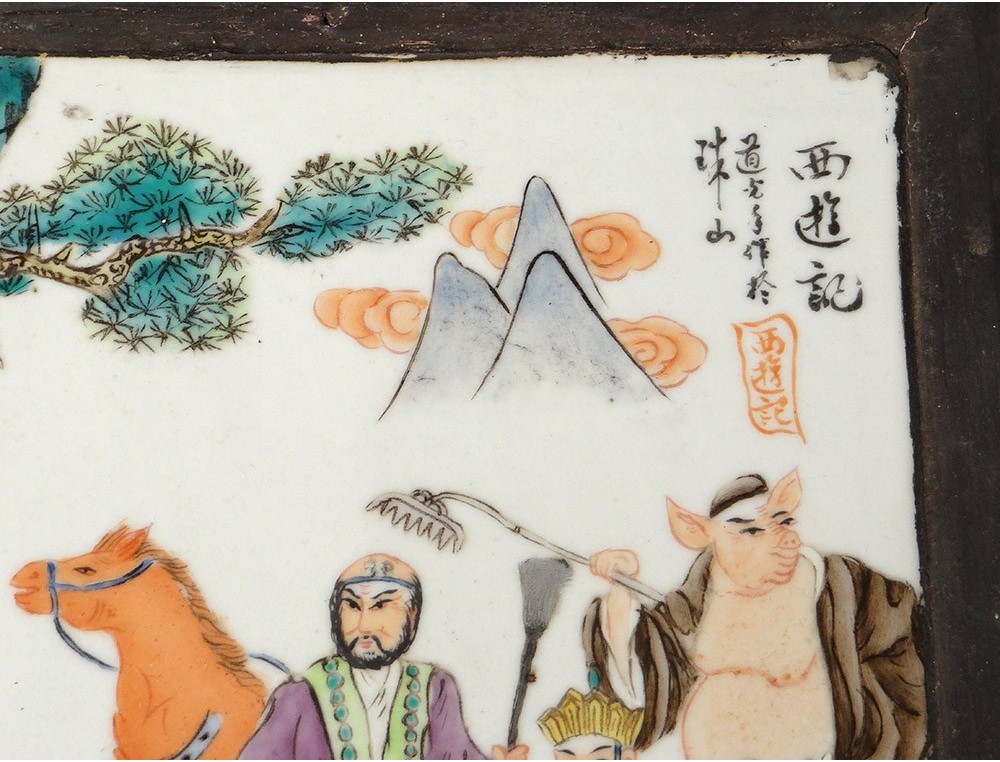 西遊記
道光年作於
珠山
西遊記